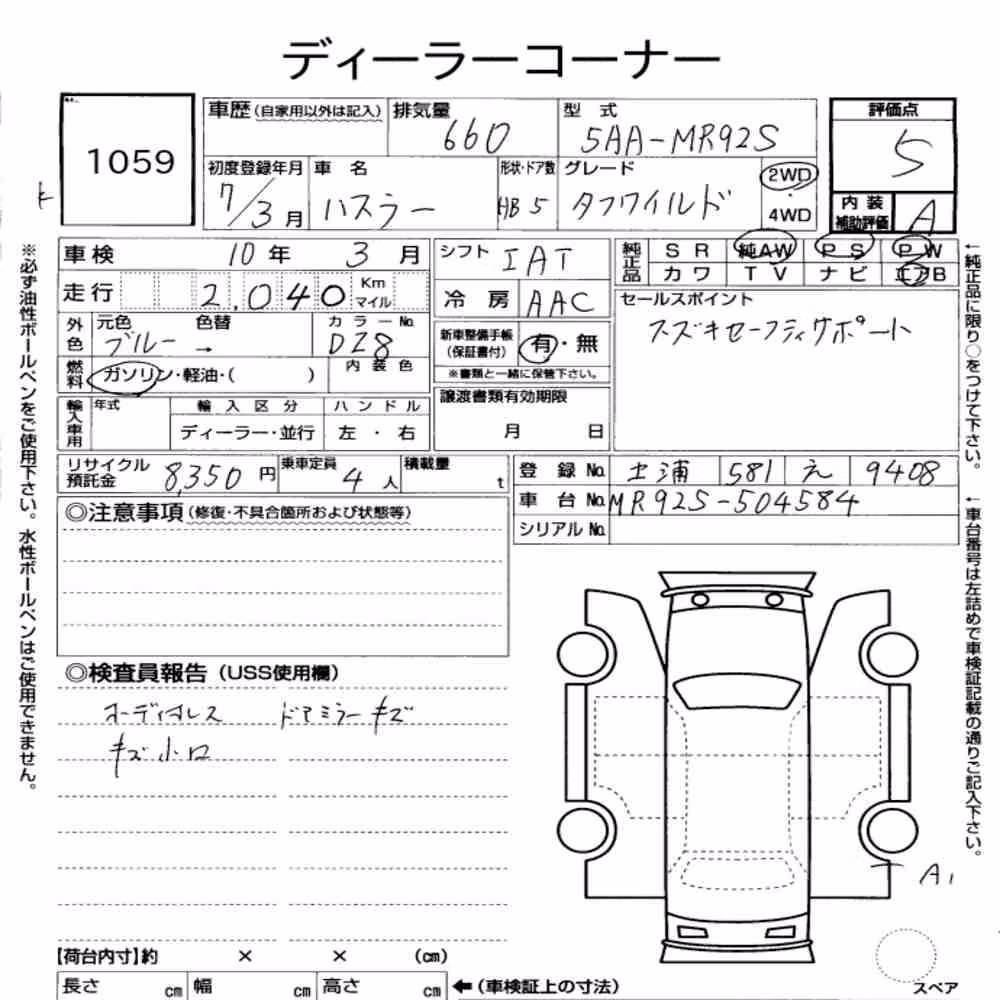 ディーラーコーナー
1059
車歴(自家用以外は記入)
排気量
660
型 式
5AA-MR92S
評価点
5
初度登録年月
7/3月
車 名
ハスラー
形状・ドア数
HB 5
グレード
タフワイルド
2WD
・
4WD
内 装
補助評価
A
車検
10年 3月
シフト
IAT
純正品
SR
純AW
PS
PW
カワ
TV
ナビ
エアB
走行
2,040
Km
マイル
冷 房
AAC
セールスポイント
スズキセーフティサポート
外色
元色
ブルー
→
色替
カラーNo.
DZ8
新車整備手帳
(保証書付)
有・無
※書類と一緒に保管下さい。
燃料
ガソリン・軽油・( )
内 装 色
譲渡書類有効期限
月 日
輸入車用
年式
輸 入 区 分
ディーラー・並行
ハ ン ド ル
左 ・ 右
リサイクル
預託金
8,350円
乗車定員
4人
積載量
t
登 録 No.
土浦 581 え 9408
車 台 No.
MR92S-504584
シリアル No.
◎注意事項(修復・不具合箇所および状態等)
◎検査員報告(USS使用欄)
オーディオレス
ドアミラーキズ
キズ小口
A1
【荷台内寸】約 × × (cm)
長さ cm
幅 cm
高さ cm
←(車検証上の寸法)
スペア
※必ず油性ボールペンをご使用下さい。水性ボールペンはご使用できません。
←純正品に限り○をつけて下さい。
←車台番号は左詰めで車検証記載の通りご記入下さい。